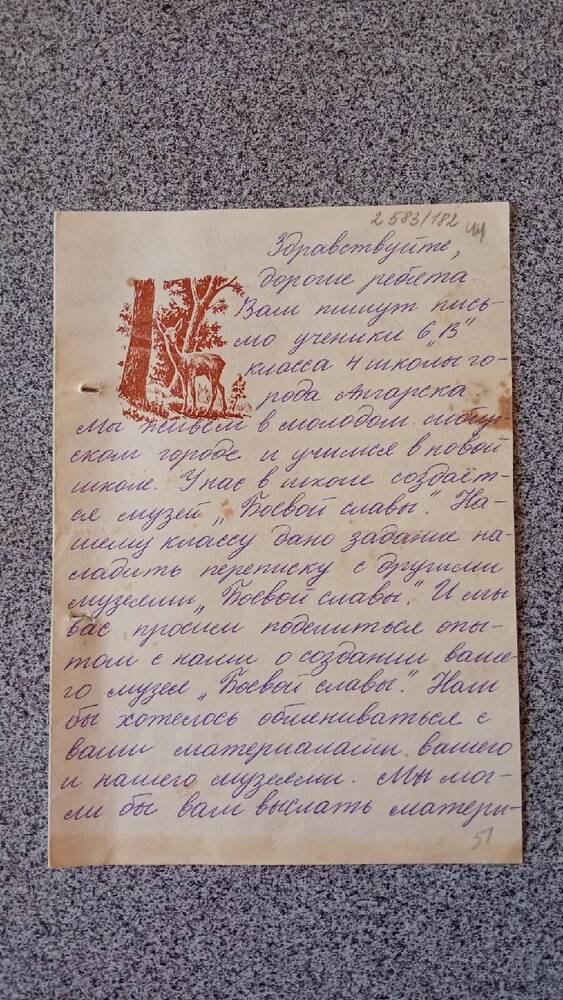 2583/182
Здравствуйте,
дорогие ребята.
Вам пишут пись-
мо ученики 6 „В"
класса 4 школы го-
рода Ангарска
Мы живём в молодом сибир-
ском городе и учимся в новой
школе. У нас в школе создаёт-
ся музей „Боевой славы". На-
шему классу дано задание на-
ладить переписку с другими
музеями „Боевой славы". И мы
вас просим поделиться опы-
том с нами о создании ваше-
го музея „Боевой славы". Нам
бы хотелось обмениваться с
вами материалами вашего
и нашего музеями. Мы мог-
ли бы вам выслать матери-
51